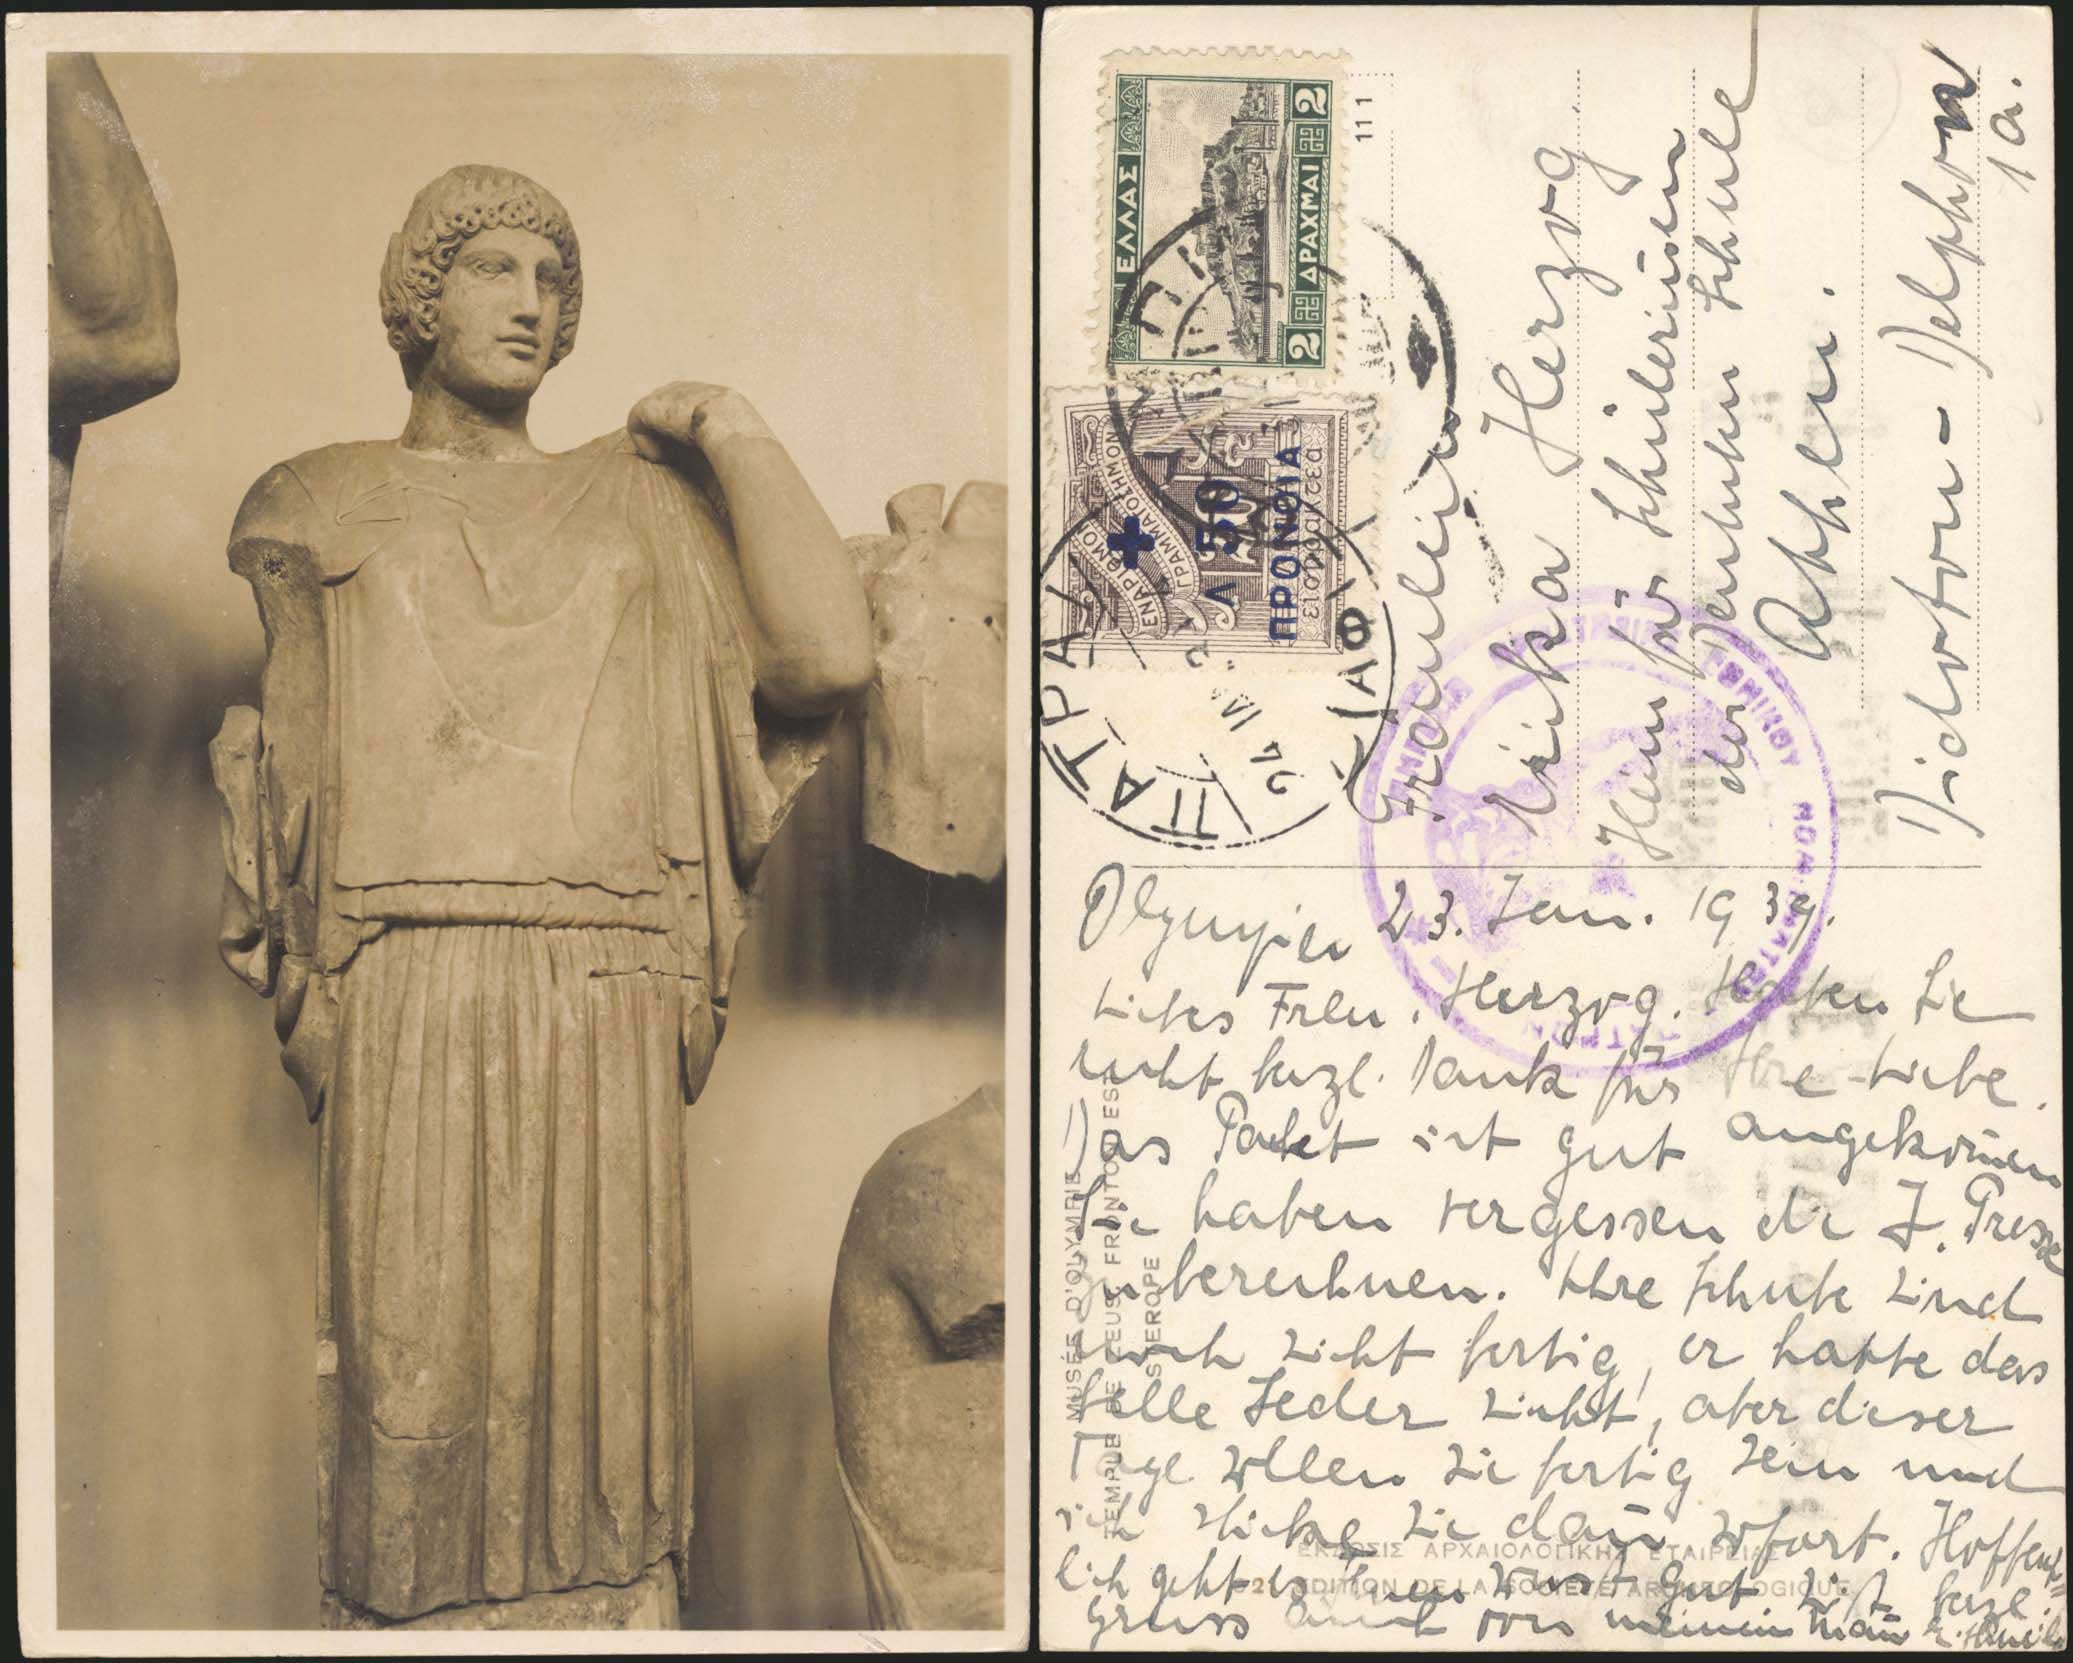 ΕΛΛΑΣ
2 ΔΡΑΧΜΑΙ 2
111
ΕΝΑΡΙΘΜΟΝ
ΓΡΑΜΜΑΤΟΣΗΜΟΝ
Λ 50
ΠΡΟΝΟΙΑ
εισπρακτέα
ΠΑΤΡΑΙ
24 ΙΑΝ
Fräulein
Erika Herzog
Heim für Schülerinen
der Deutschen Schule
Athen.
Didotou - Delphon
1a.
Olympia 23. Jan. 1939.
Liebes Frln. Herzog. Haben Sie
recht herzl. Dank für Ihre Liebe.
Das Paket ist gut angekom̄en
Sie haben vergessen die Z. Presse
zu berechnen. Ihre Schuhe sind
noch nicht fertig, er hatte das
helle Leder nicht, aber dieser
Tage sollen sie fertig sein und
ich schicke sie dan̄ sofort. Hoffent=
lich geht es Ihnen sonst gut. Es herzl.
gruss auch von meinem Man̄
MUSÉE D'OLYMPIE
TEMPLE DE ZEUS, FRONTON EST
STEROPE
ΕΚΔΟΣΙΣ ΑΡΧΑΙΟΛΟΓΙΚΗΣ ΕΤΑΙΡΕΙΑΣ
EDITION DE LA SOCIÉTÉ ARCHÉOLOGIQUE